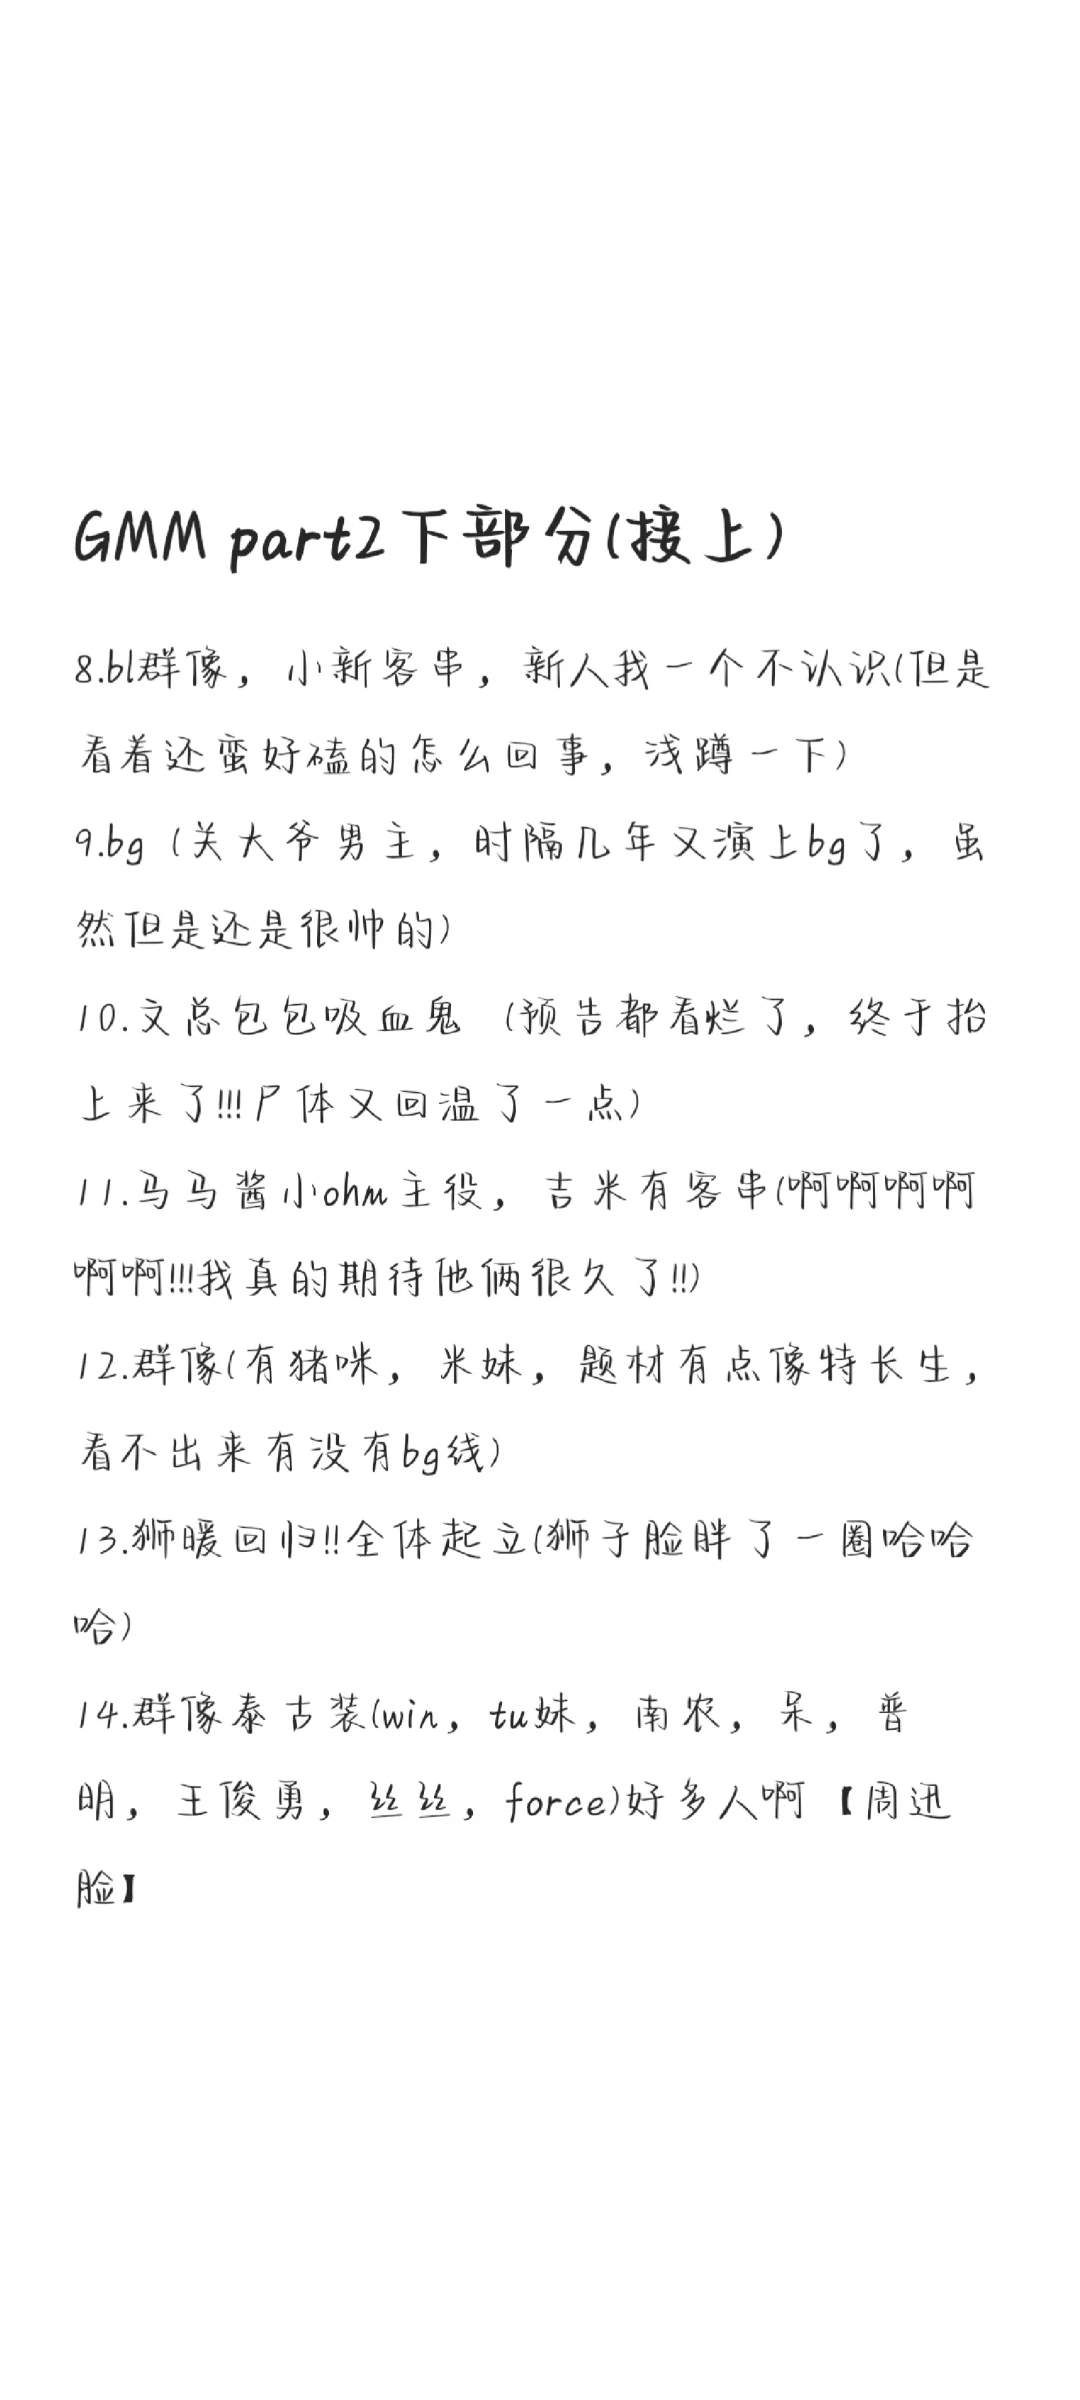 GMM part2下部分(接上)
8.bl群像，小新客串，新人我一个不认识(但是
看着还蛮好磕的怎么回事，浅蹲一下)
9.bg（关大爷男主，时隔几年又演上bg了，虽
然但是还是很帅的)
10.文总包包吸血鬼 (预告都看烂了，终于抬
上来了!!!尸体又回温了一点)
11.马马酱小ohm主役，吉米有客串(啊啊啊啊
啊啊!!!我真的期待他俩很久了!!)
12.群像(有猪咪，米妹，题材有点像特长生，
看不出来有没有bg线)
13.狮暖回归!!全体起立(狮子脸胖了一圈哈哈
哈)
14.群像泰古装(win，tu妹，南农，呆，普
明，王俊勇，丝丝，force)好多人啊【周迅
脸】